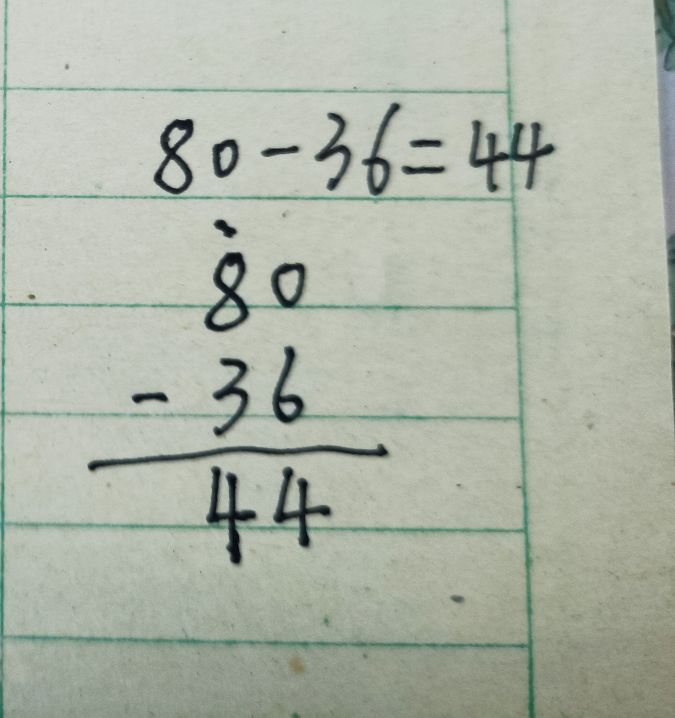 80-36=44
80
-36
44